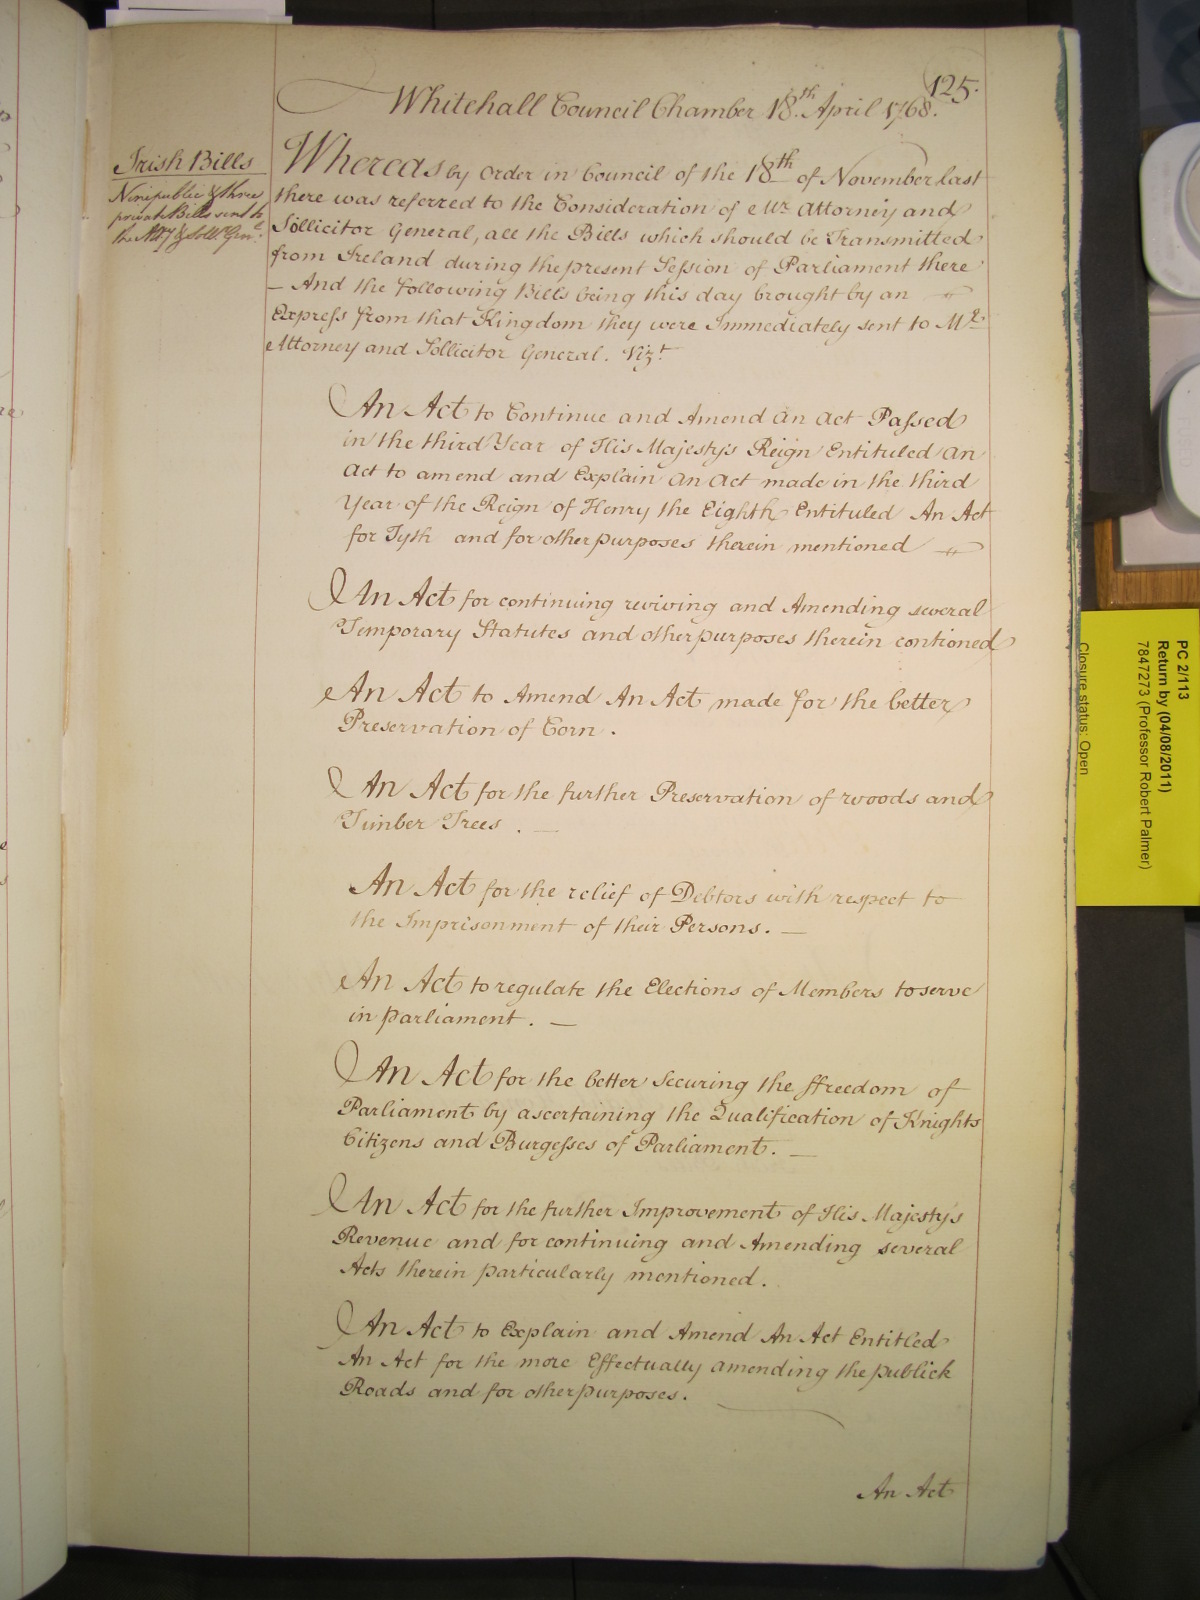 125.
Whitehall Council Chamber 18th. April 1768.
Irish Bills
Nine public & three
private Bills sent to
the Atty & Sollr. Genl.
Whereas by Order in Council of the 18th of November last
there was referred to the Consideration of Mr. Attorney and
Sollicitor General, all the Bills which should be Transmitted
from Ireland during the present Session of Parliament there
– And the following Bills being this day brought by an
Express from that Kingdom they were Immediately sent to Mr.
Attorney and Sollicitor General. Vizt.
An Act to Continue and Amend an Act Passed
in the third Year of His Majesty's Reign Entituled An
Act to amend and Explain An Act made in the third
Year of the Reign of Henry the Eighth Entituled An Act
for Tyth and for other purposes therein mentioned
An Act for continuing reviving and Amending several
Temporary Statutes and other purposes therein contioned
An Act to Amend An Act made for the better
Preservation of Corn.
An Act for the further Preservation of woods and
Timber Trees. —
An Act for the relief of Debtors with respect to
the Imprisonment of their Persons. —
An Act to regulate the Elections of Members to serve
in parliament. —
An Act for the better Securing the ffreedom of
Parliament by ascertaining the Qualification of Knights
Citizens and Burgesses of Parliament. —
An Act for the further Improvement of His Majesty's
Revenue and for continuing and Amending several
Acts therein particularly mentioned.
An Act to Explain and Amend An Act Entitled
An Act for the more Effectually amending the publick
Roads and for other purposes.
An Act
PC 2/113
Return by (04/08/2011)
7847273 (Professor Robert Palmer)
Closure status: Open